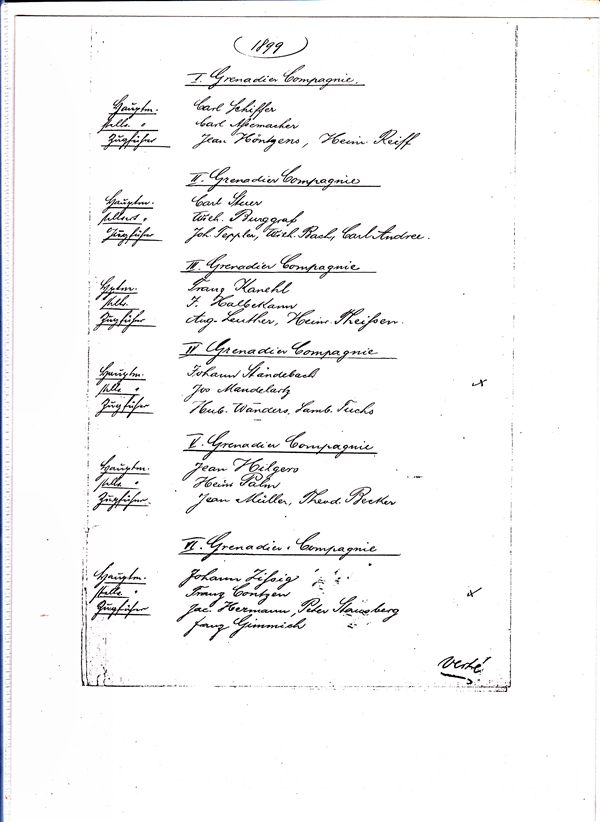 (1899)
I. Grenadier Compagnie.
Hauptm. Carl Schiffer
stellv. " Carl Assemacher
Zugführer Jean Höntgens, Heinr. Reiff
II. Grenadier Compagnie
Hauptm. Carl Steuer
stellvert. " Wilh. Burggraf
Zugführer Joh. Teppler, Wilh. Bach, Carl Andree.
III. Grenadier Compagnie
Hptm. Franz Kanehl
stellv. F. Halbekann
Zugführer Aug. Leuther, Heinr. Theißen.
IV Grenadier Compagnie
Hauptm. Johann Ständebach
stellv. " Jos Mandelartz
Zugführer Hub. Wanders, Lamb. Fuchs
V. Grenadier Compagnie
Hauptm. Jean Hilgers
stellv. " Heinr. Palm
Zugführer. Jean Müller, Theod. Becker
VI. Grenadier-Compagnie
Hauptm. Johann
stellv. " Franz Contzen
Zugführer Jac. Hermann, Peter
Franz Gimmich